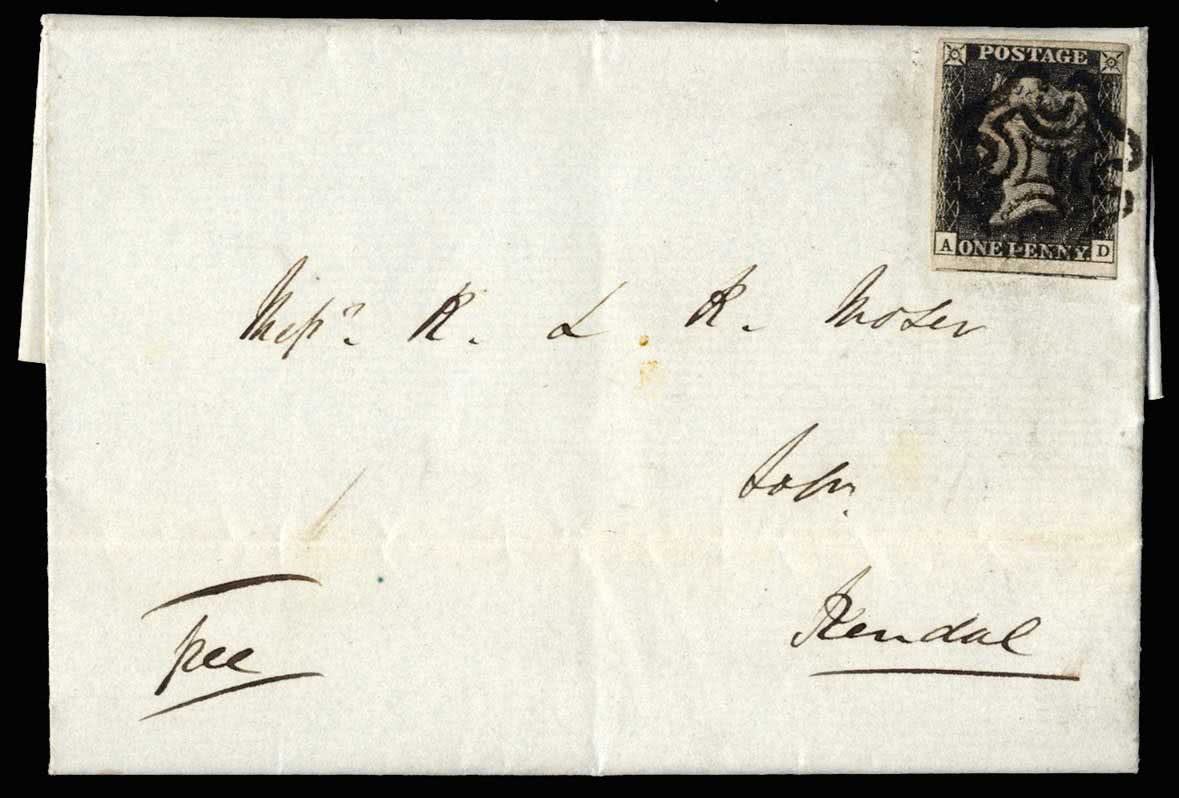 POSTAGE
A ONE PENNY D
Messrs. R. & R. Moser
Solrs.
Kendal
Free